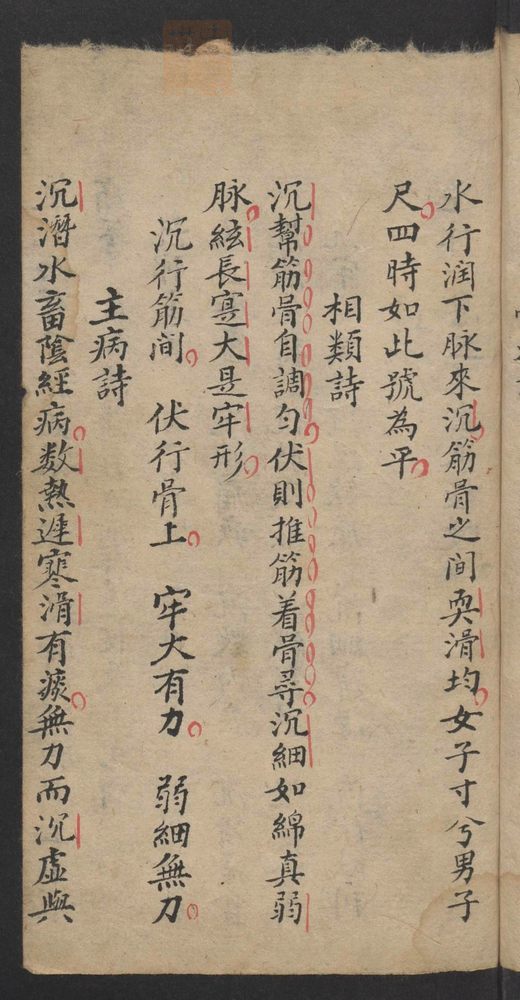 水行润下脉來沉筋骨之间耎滑均女子寸兮男子
尺四時如此號為平
相類詩
沉幫筋骨自調匀伏則推筋着骨尋沉細如綿真弱
脉絃長寔大是牢形
沉行筋间 伏行骨上 牢大有力 弱細無力
主病詩
沉潛水畜陰經病数熱遲寒滑有痰無力而沉虛與